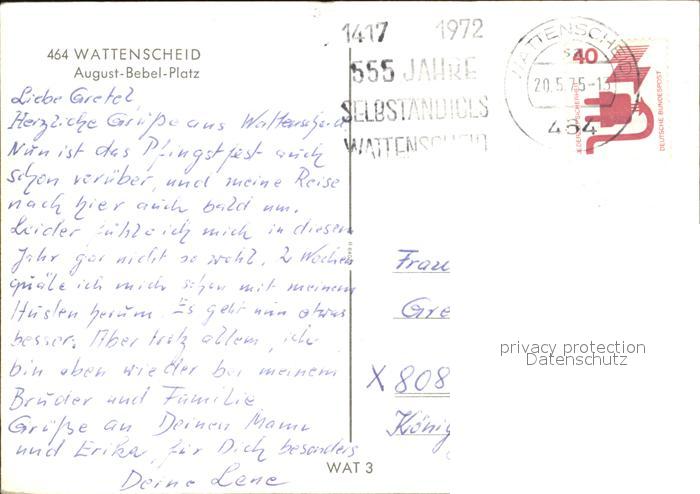 464 WATTENSCHEID
August-Bebel-Platz
1417 1972
555 JAHRE
SELBSTÄNDIGES
WATTENSCHEID
WATTENSCHEID
20.5.75-13
464
40
JEDERZEIT SICHERHEIT
DEUTSCHE BUNDESPOST
Liebe Gretel,
Herzliche Grüße aus Wattenscheid
Nun ist das Pfingstfest auch
schon vorüber, und meine Reise
nach hier auch bald um.
Leider fühle ich mich in diesem
Jahr gar nicht so wohl. 2 Wochen
quäle ich mich schon mit meinem
Husten herum. Es geht nun etwas
besser. Aber trotz allem, ich
bin eben wieder bei meinem
Bruder und Familie
Grüße an Deinen Mann
und Erika, für Dich besonders
Deine Lene
Frau
Gre
X 808
König
privacy protection
Datenschutz
WAT 3